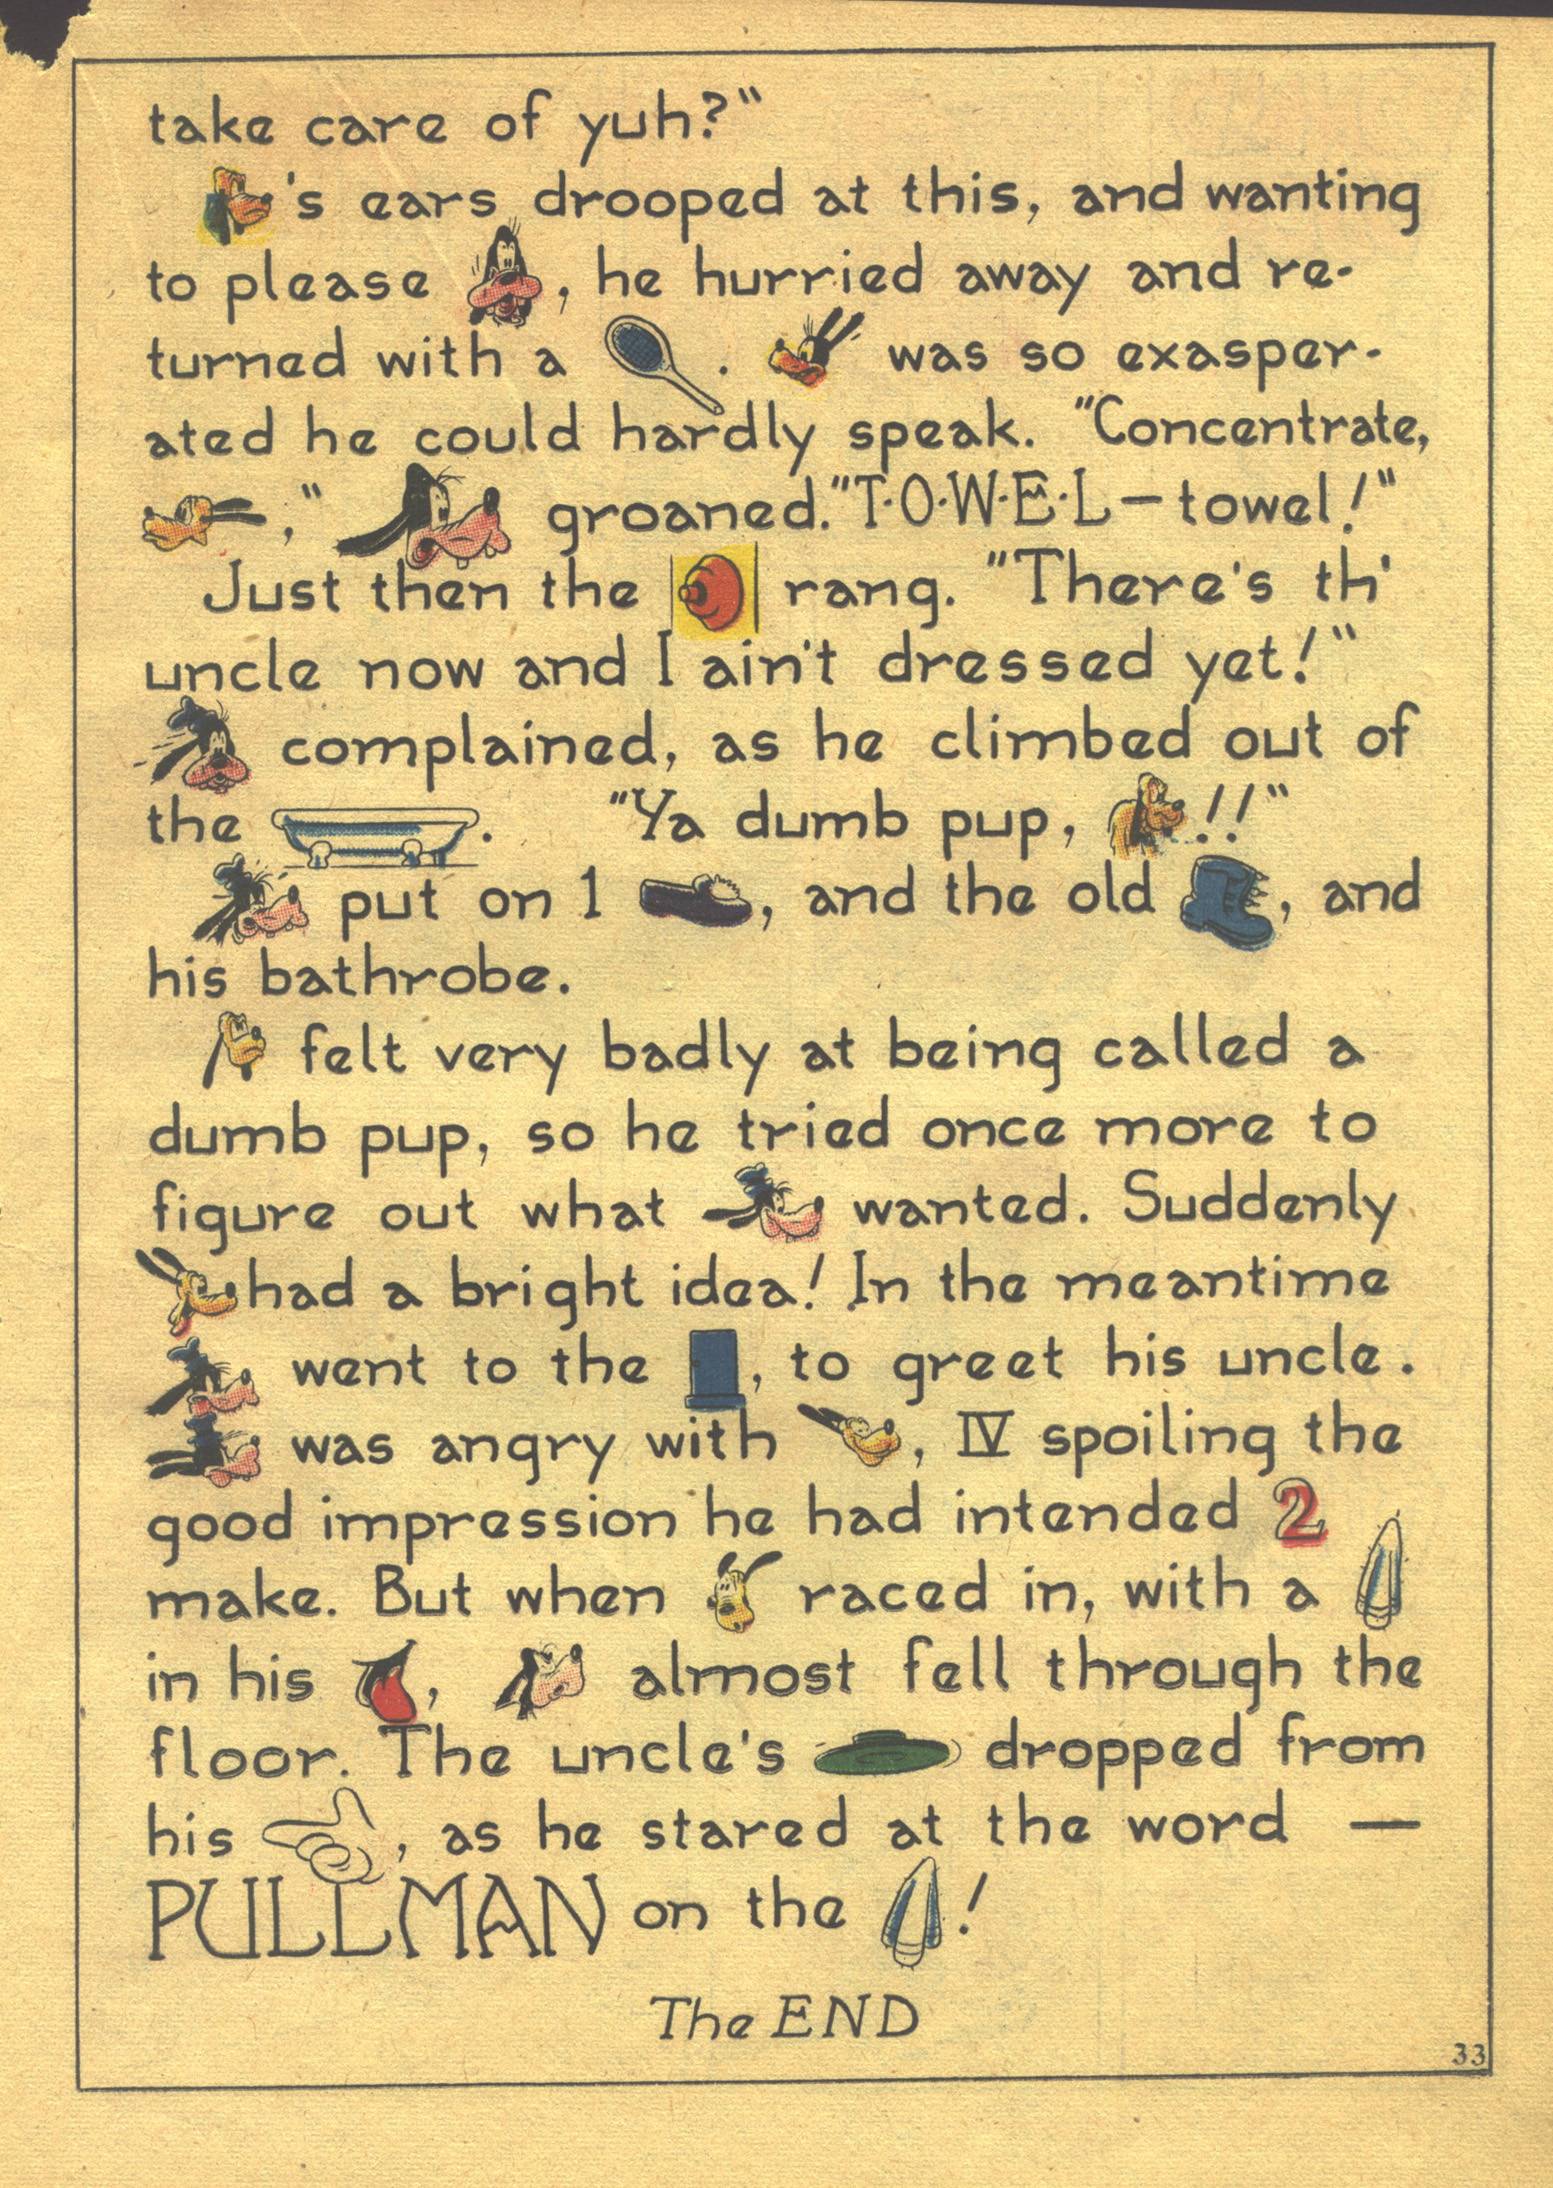 take care of yuh?"
's ears drooped at this, and wanting
to please , he hurried away and re-
turned with a . was so exasper-
ated he could hardly speak. "Concentrate,
," groaned. "T·O·W·E·L — towel!"
Just then the rang. "There's th'
uncle now and I ain't dressed yet!"
complained, as he climbed out of
the . "Ya dumb pup, !!"
put on 1 , and the old , and
his bathrobe.
felt very badly at being called a
dumb pup, so he tried once more to
figure out what wanted. Suddenly
had a bright idea! In the meantime
went to the , to greet his uncle.
was angry with , IV spoiling the
good impression he had intended 2
make. But when raced in, with a
in his , almost fell through the
floor. The uncle's dropped from
his , as he stared at the word —
PULLMAN on the !
The END
33